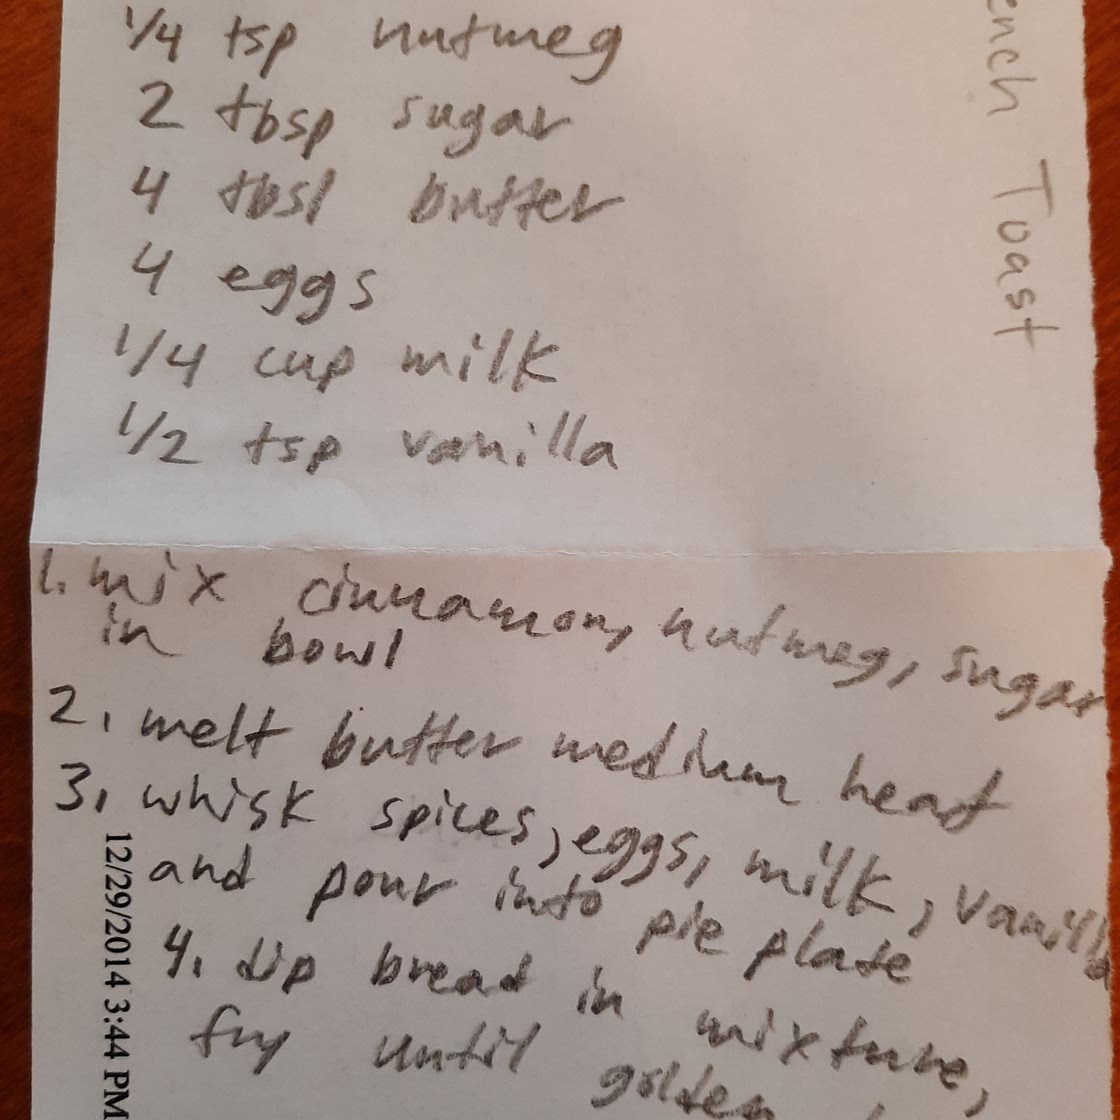 1/4 tsp nutmeg
2 tbsp sugar
4 tbsl butter
4 eggs
1/4 cup milk
1/2 tsp vanilla
ench Toast
1. mix cinnamon, nutmeg, sugar
in bowl
2. melt butter medium heat
3. whisk spices, eggs, milk, vanilla
and pour into pie plate
4. dip bread in mixture,
fry until golden
12/29/2014 3:44 PM